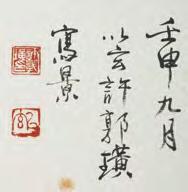 壬申九月
以玄許郭璜
寫景